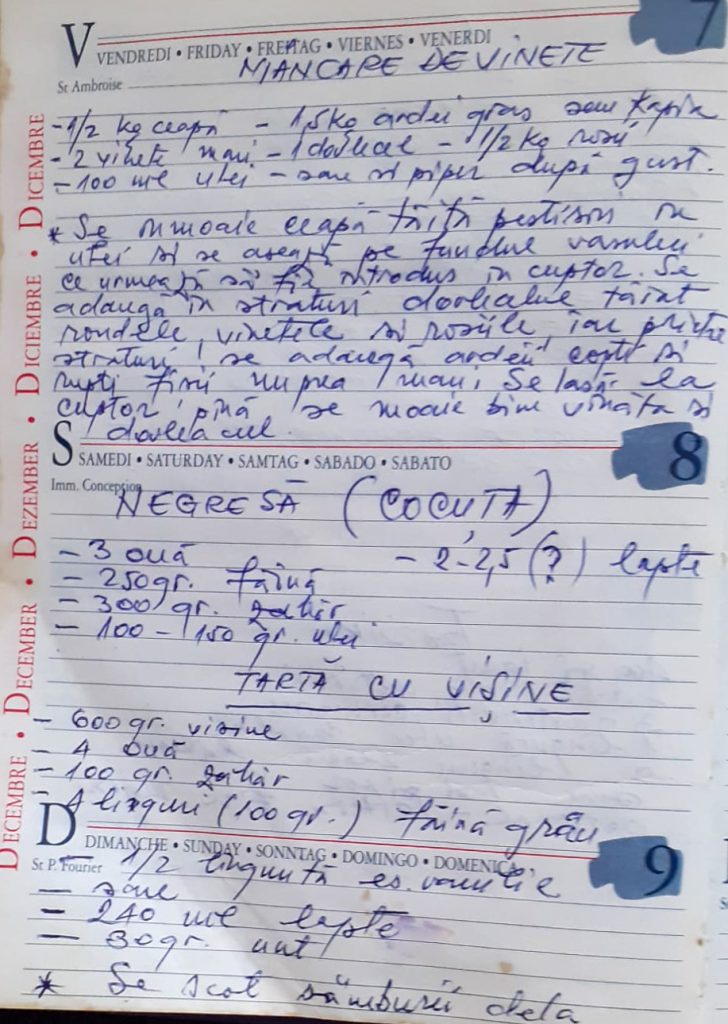 7
VENDREDI • FRIDAY • FREITAG • VIERNES • VENERDI
MANCARE DE VINETE
St Ambroise
- 1/2 kg ceapă - 1,5 kg ardei gras sau kapia
- 2 vinete mari - 1 dovlecel - 1/2 kg rosii
- 100 ml ulei - sare si piper după gust.
* Se inmoaie ceapă tăiță pestisori in
ulei si se asează pe fundul vasului
ce urmează să fie introdus in cuptor. Se
adaugă in straturi dovlecelul tăiat
rondele, vinetele si rosiile, iar printre
straturi se adaugă ardeii copti si
rupti fisii nu prea mari. Se lasă la
cuptor pină se moaie bine vinăta si
dovleacul.
8
SAMEDI • SATURDAY • SAMTAG • SABADO • SABATO
Imm. Conception
NEGRESĂ (COCUȚA)
- 3 ouă - 2-2,5 (?) lapte
- 250 gr. făină
- 300 gr. zahăr
- 100 - 150 gr. ulei
TARTĂ CU VIȘINE
- 600 gr. visine
- 4 ouă
- 100 gr. zahăr
- 4 linguri (100 gr.) făină grâu
9
DIMANCHE • SUNDAY • SONNTAG • DOMINGO • DOMENICA
St P. Fourier
- 1/2 linguriță es. vanilie
- sare
- 240 ml lapte
- 30 gr. unt
* Se scot sâmburii dela
DECEMBRE • DECEMBER • DEZEMBER • DICIEMBRE • DICEMBRE